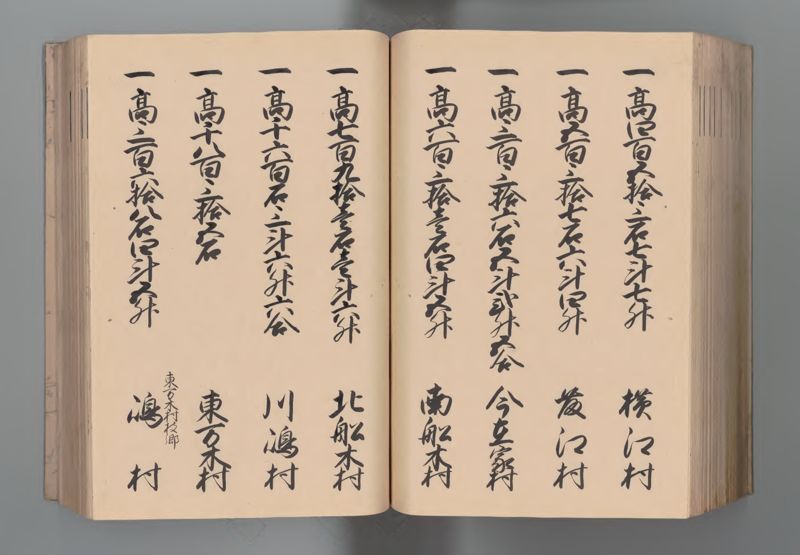 一高四百五拾三石七斗七升 横江村
一高五百三拾七石六斗四升 发江村
一高三百三拾六石五斗弐升五合 今立家村
一高六百三拾壱石四斗五升 南船木村
一高七百九拾壱石壱斗六升 北船木村
一高千六百石三斗六升六合 川嶋村
一高千八百三拾五石 東万木村
東万木村枝郷
一高三百六拾八石四斗五升 嶋村